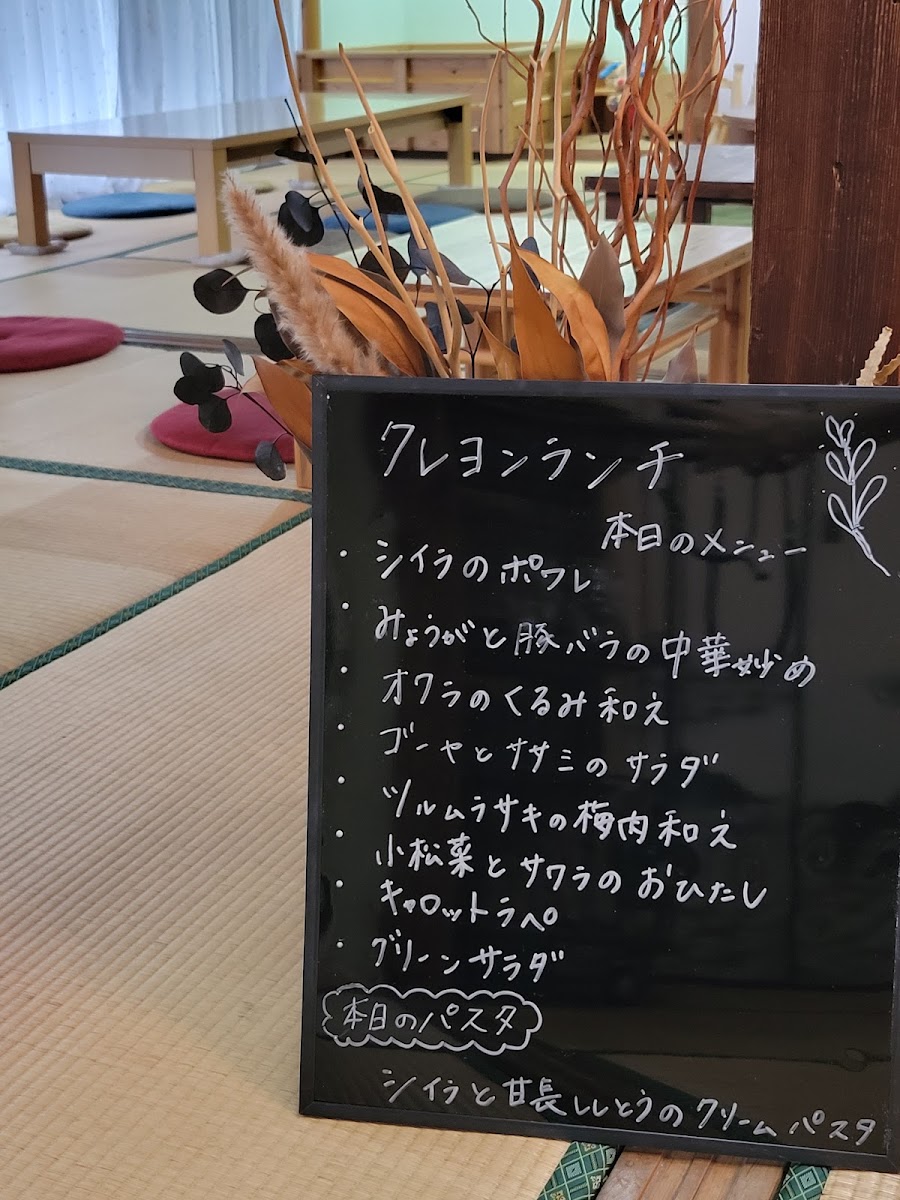 クレヨンランチ
本日のメニュー
・シイラのポワレ
・みょうがと豚バラの中華炒め
・オクラのくるみ和え
・ゴーヤとササミのサラダ
・ツルムラサキの梅肉和え
・小松菜とサワラのおひたし
・キャロットラペ
・グリーンサラダ
本日のパスタ
シイラと甘長ししとうのクリームパスタ